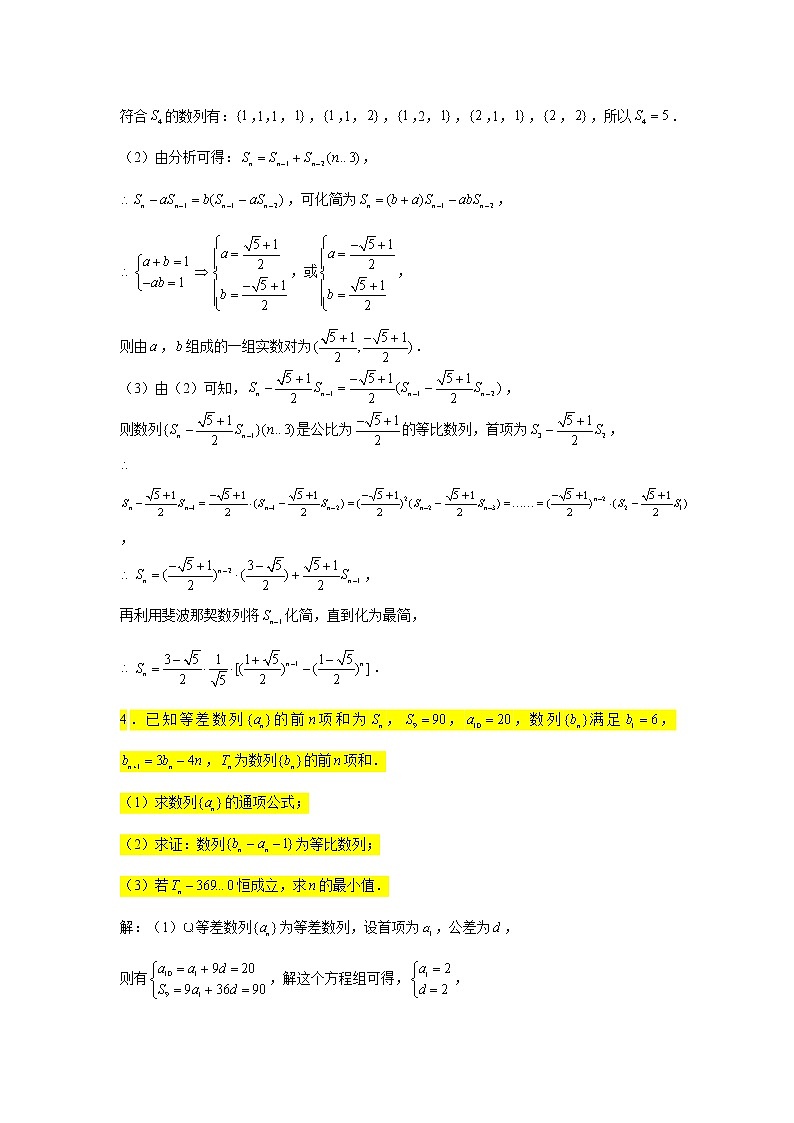 符合 S₄ 的数列有：{1，1，1，1}，{1，1，2}，{1，2，1}，{2，1，1}，{2，2}，所以 S₄ = 5．
（2）由分析可得：Sₙ = Sₙ₋₁ + Sₙ₋₂(n...3)，
∴ Sₙ − aSₙ₋₁ = b(Sₙ₋₁ − aSₙ₋₂)，可化简为 Sₙ = (b + a)Sₙ₋₁ − abSₙ₋₂，
∴ {a + b = 1, −ab = 1 ⇒ {a = (√5+1)/2, b = (−√5+1)/2，或 {a = (−√5+1)/2, b = (√5+1)/2，
则由 a，b 组成的一组实数对为 ((√5+1)/2, (−√5+1)/2)．
（3）由（2）可知，Sₙ − (√5+1)/2 Sₙ₋₁ = (−√5+1)/2 (Sₙ₋₁ − (√5+1)/2 Sₙ₋₂)，
则数列{Sₙ − (√5+1)/2 Sₙ₋₁}(n...3)是公比为 (−√5+1)/2 的等比数列，首项为 S₃ − (√5+1)/2 S₂，
∴
Sₙ − (√5+1)/2 Sₙ₋₁ = (−√5+1)/2 · (Sₙ₋₁ − (√5+1)/2 Sₙ₋₂) = ((−√5+1)/2)²(Sₙ₋₂ − (√5+1)/2 Sₙ₋₃) = …… = ((−√5+1)/2)ⁿ⁻² · (S₂ − (√5+1)/2 S₁)
，
∴ Sₙ = ((−√5+1)/2)ⁿ⁻² · ((3−√5)/2) + (√5+1)/2 Sₙ₋₁，
再利用斐波那契数列将 Sₙ₋₁ 化简，直到化为最简，
∴ Sₙ = (3−√5)/2 · 1/√5 · [((1+√5)/2)ⁿ⁻¹ − ((1−√5)/2)ⁿ]．
4．已知等差数列{aₙ}的前 n 项和为 Sₙ，S₉ = 90，a₁₀ = 20，数列{bₙ}满足 b₁ = 6，
bₙ₊₁ = 3bₙ − 4n，Tₙ 为数列{bₙ}的前 n 项和．
（1）求数列{aₙ}的通项公式；
（2）求证：数列{bₙ − aₙ − 1}为等比数列；
（3）若 Tₙ − 369...0 恒成立，求 n 的最小值．
解：（1）Q 等差数列{aₙ}为等差数列，设首项为 a₁，公差为 d，
则有 {a₁₀ = a₁ + 9d = 20, S₉ = 9a₁ + 36d = 90，解这个方程组可得，{a₁ = 2, d = 2，